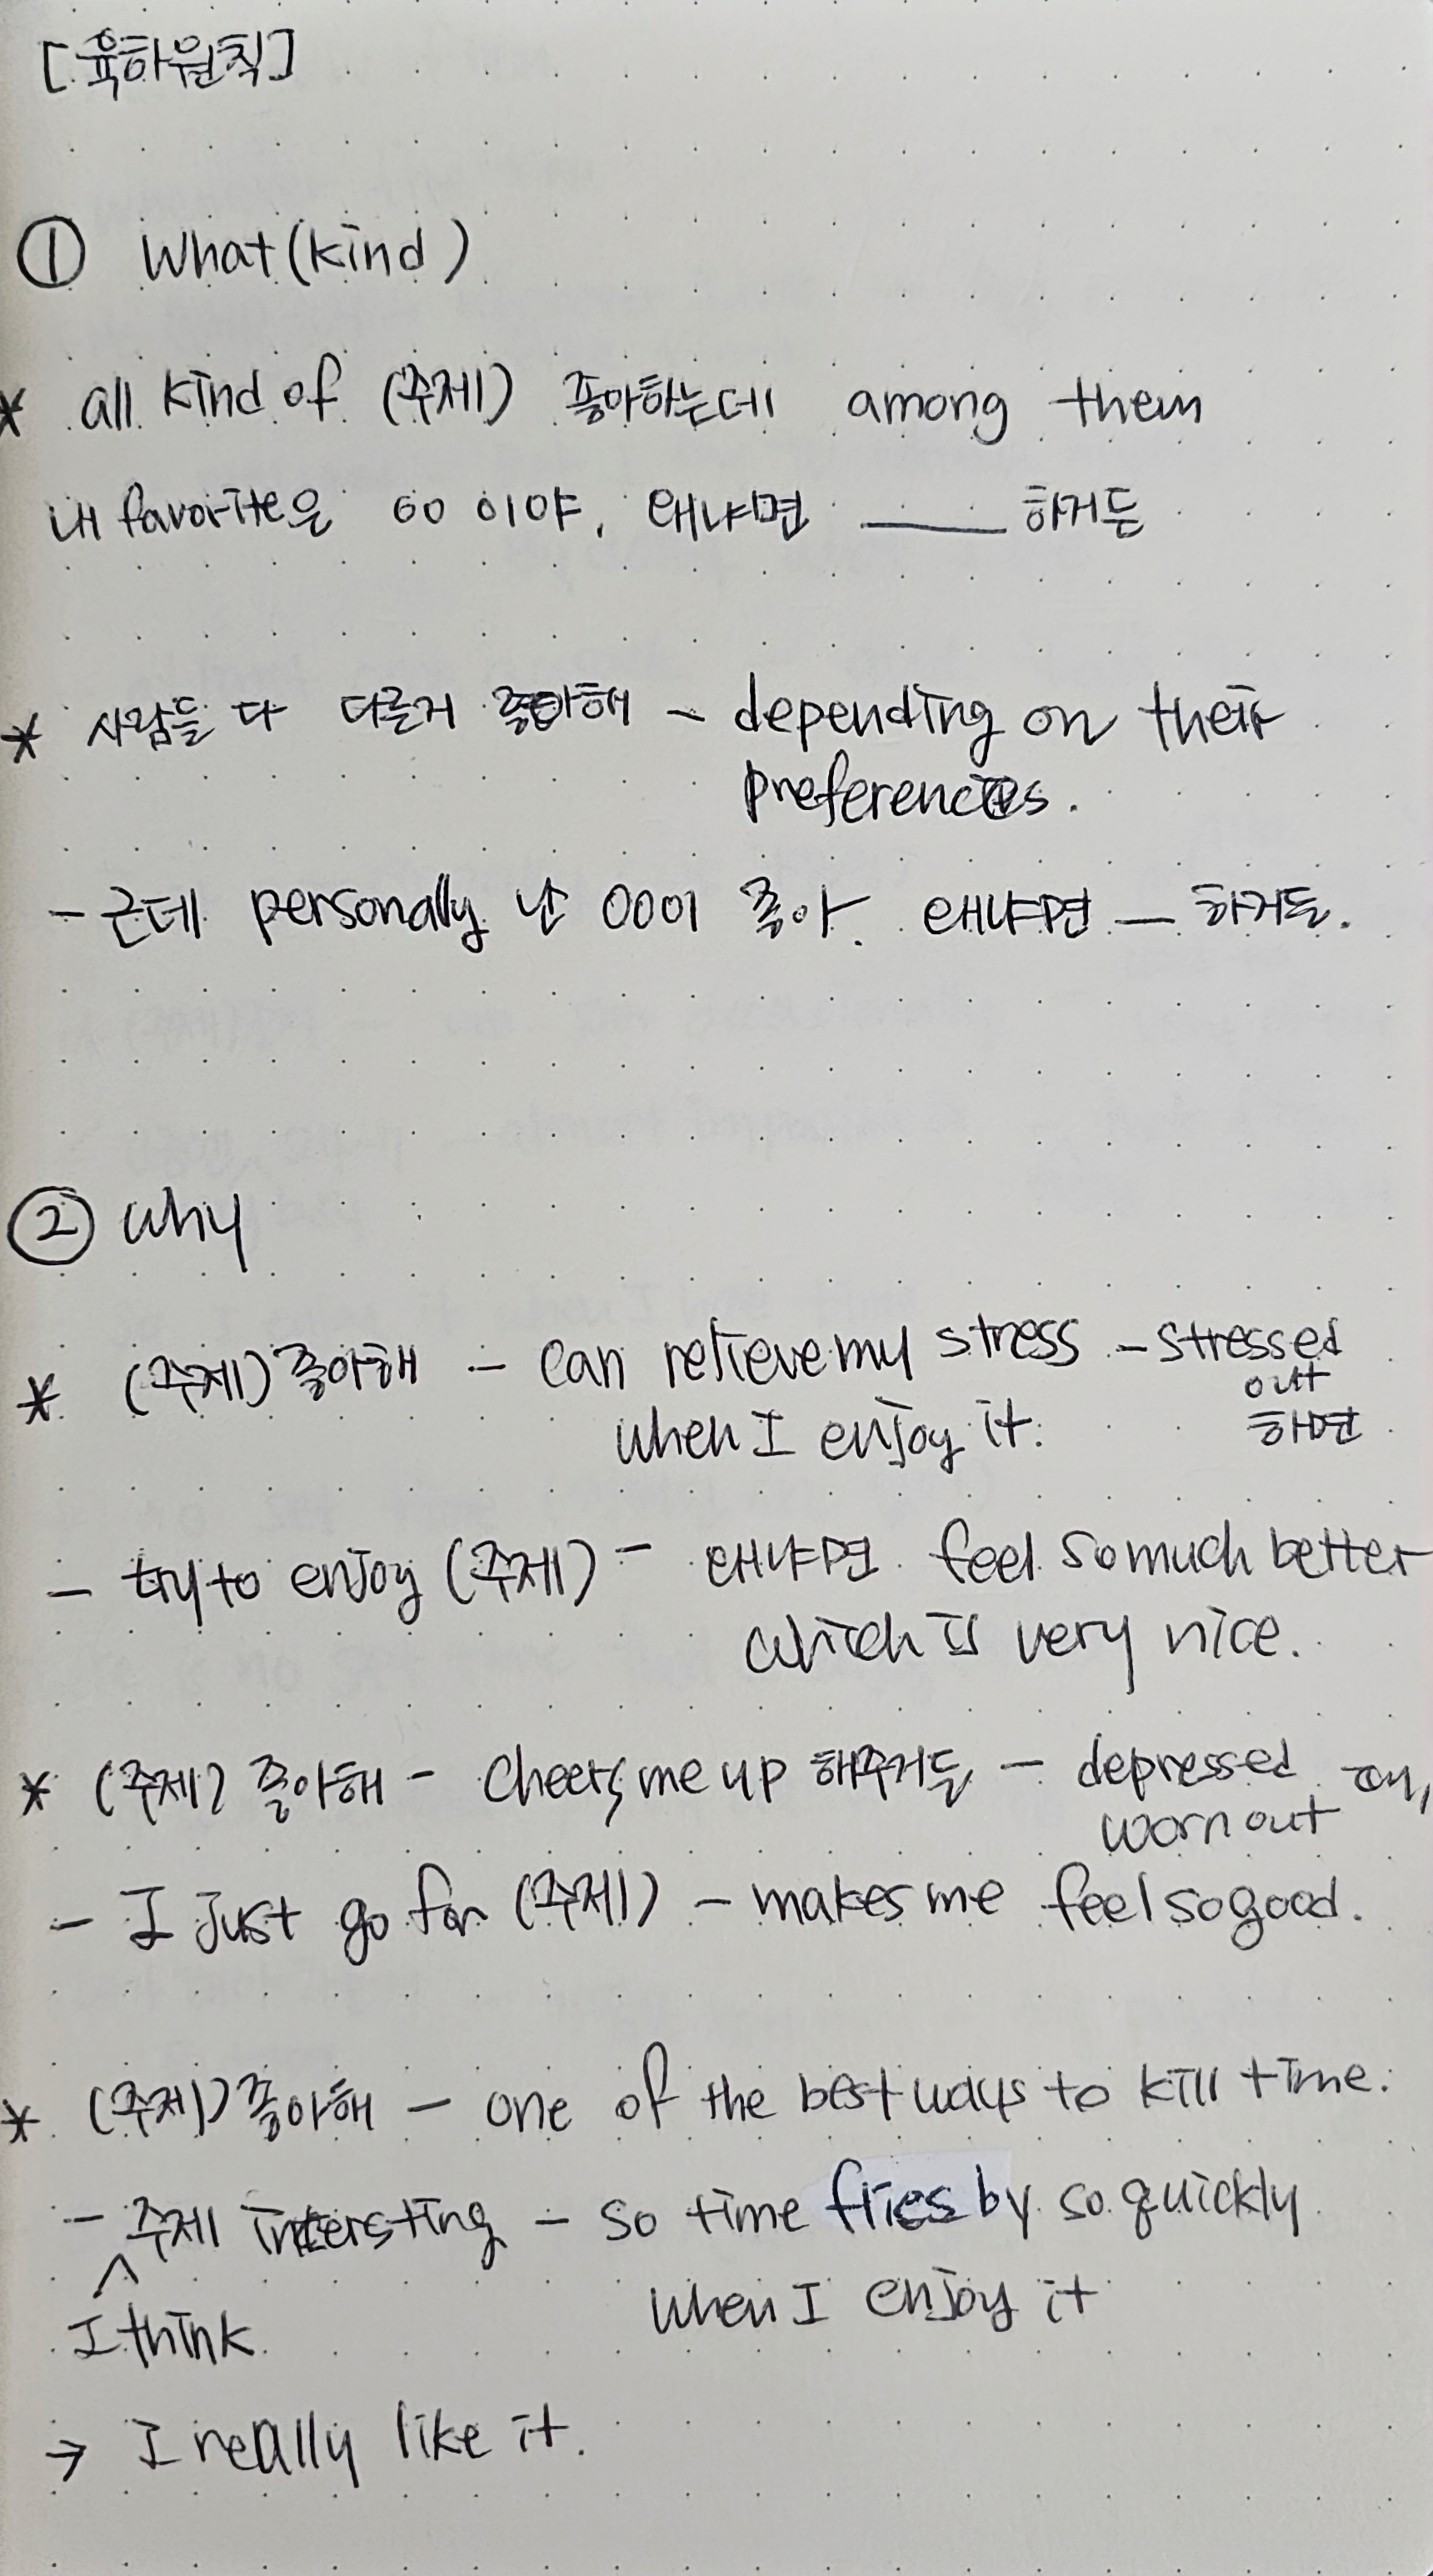 [육하원칙]
① What (kind)
* all kind of (주제) 좋아하는데 among them
내 favorite은 OO 이야, 왜냐면 ____ 하거든
* 사람들 다 다른거 좋아해 - depending on their
preferences.
- 근데 personally 난 OOO이 좋아. 왜냐면 - 하거든.
② Why
* (주제) 좋아해 - can relieve my stress - stressed
out
when I enjoy it. 하면
- try to enjoy (주제) - 왜냐면 feel so much better
which is very nice.
* (주제) 좋아해 - cheers me up 해주거든 - depressed
worn out
- I just go for (주제) - makes me feel so good.
* (주제) 좋아해 - one of the best ways to kill time.
- 주제 intersting - so time flies by so quickly
^
when I enjoy it
I think
→ I really like it.